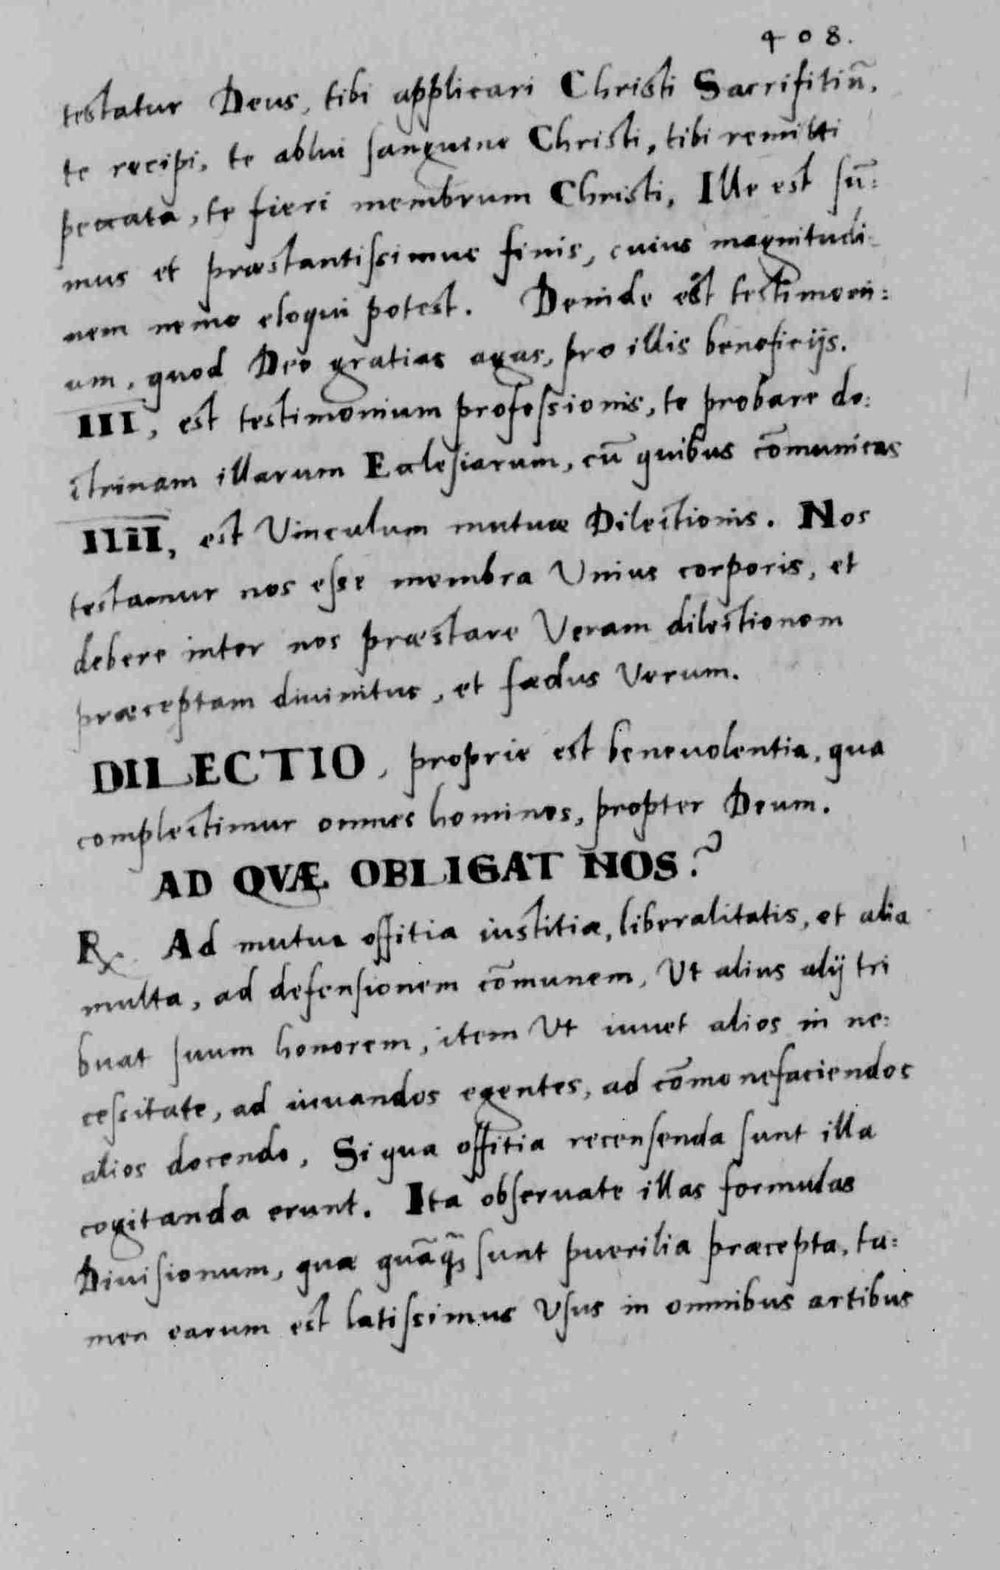 408.
testatur Deus, tibi applicari Christi Sacrifitiũ,
te recipi, te ablui sanguine Christi, tibi remitti
peccata, te fieri membrum Christi, Ille est sũ:
mus et præstantissimus finis, cuius magnitudi-
nem nemo eloqui potest. Deinde est testimoni:
um, quod Deo gratias agas, pro illis beneficijs.
III, est testimonium professionis, te probare do:
ctrinam illarum Ecclesiarum, cũ quibus cõmunicas
IIII, est Vinculum mutuæ Dilectionis. Nos
testamur nos esse membra Unius corporis, et
debere inter nos præstare Veram dilectionem
præceptam divinitus, et fædus Verum.
DILECTIO, proprie est benevolentia, qua
complectimur omnes homines, propter Deum.
AD QVÆ OBLIGAT NOS?
R. Ad mutua offitia iustitiæ, liberalitatis, et alia
multa, ad defensionem cõmunem, Ut alius alij tri
buat suum honorem, item Ut iuvet alios in ne:
cessitate, ad iuvandos egentes, ad cõmonefaciendos
alios docendo, Si qua offitia recensenda sunt illa
cogitanda erunt. Ita observate illas formulas
Divisionum, quæ quãq̃ sunt puerilia præcepta, ta:
men earum est latissimus Usus in omnibus artibus